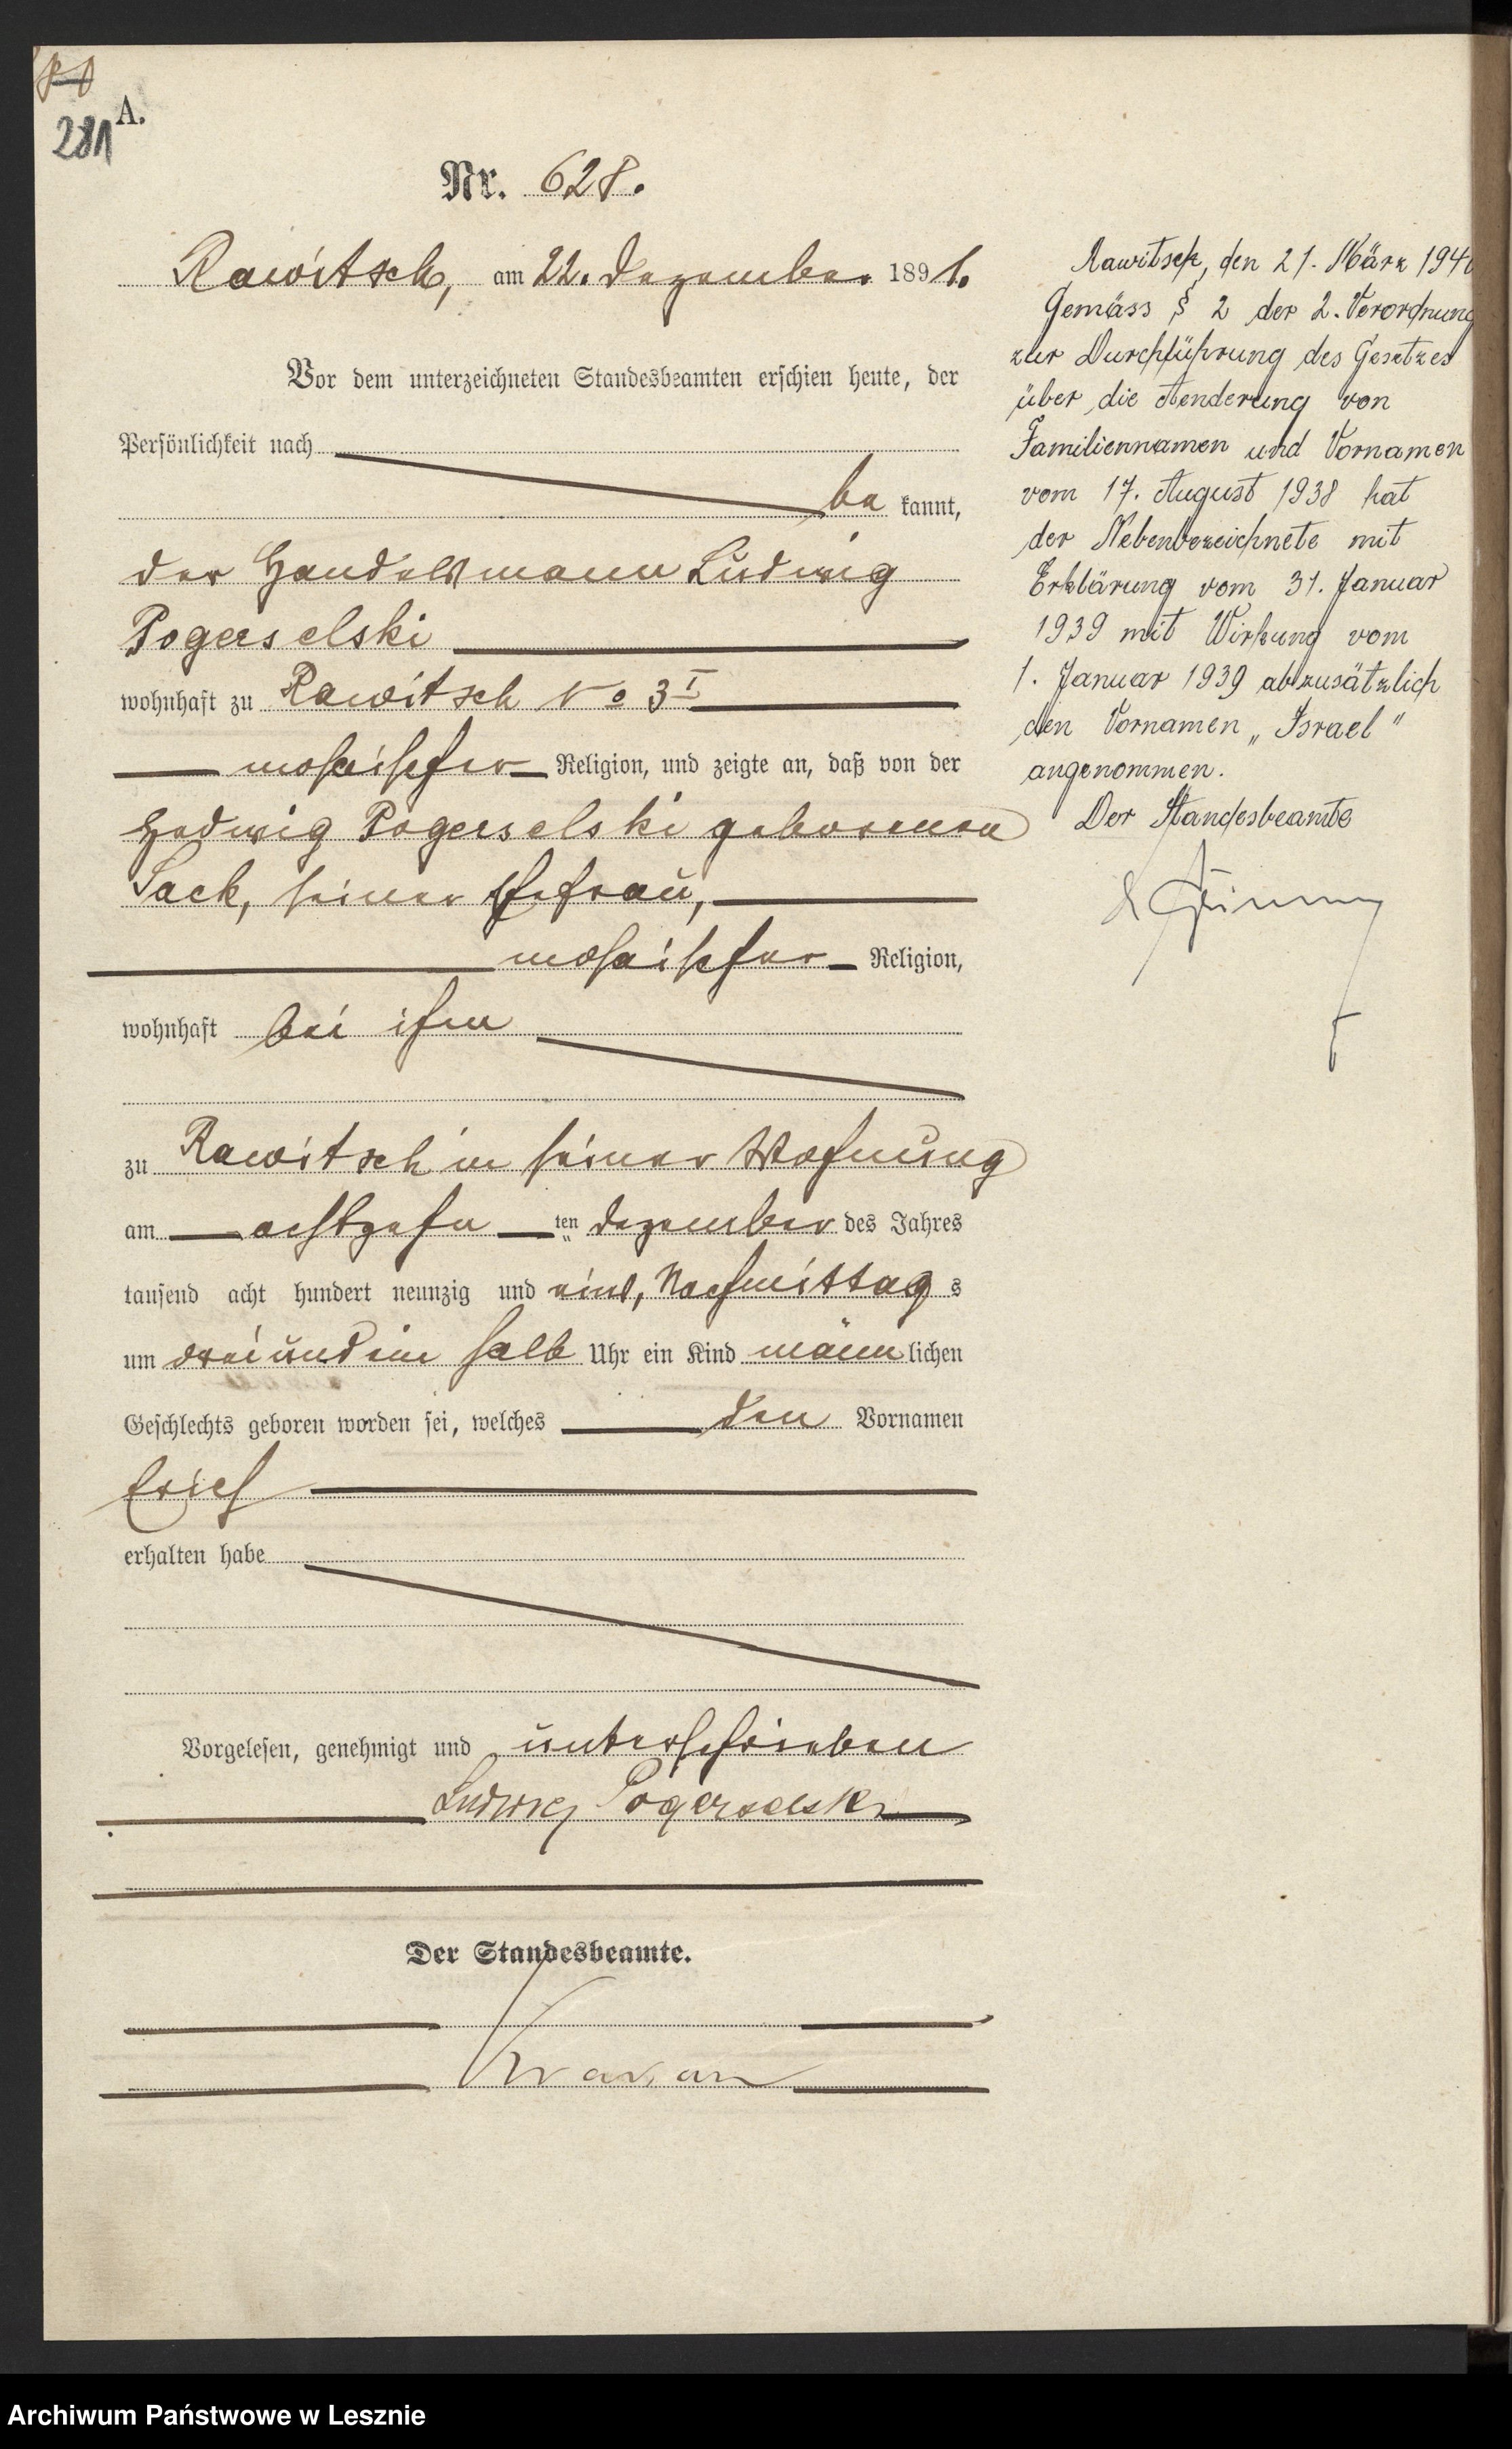 A.
281
Nr. 628.
Rawitsch, am 22. Dezember 1891.
Vor dem unterzeichneten Standesbeamten erschien heute, der
Persönlichkeit nach
bekannt,
der Handelsmann Ludwig
Pogerselski
wohnhaft zu Rawitsch No 3 I
mosaischer Religion, und zeigte an, daß von der
Hedwig Pogerselski geborenen
Sack, seiner Ehefrau,
mosaischer Religion,
wohnhaft bei ihm
zu Rawitsch in seiner Wohnung
am achtzehnten Dezember des Jahres
tausend acht hundert neunzig und eins, Nachmittags
um drei und ein halb Uhr ein Kind männlichen
Geschlechts geboren worden sei, welches den Vornamen
Erich
erhalten habe
Vorgelesen, genehmigt und unterschrieben
Ludwig Pogerselski
Der Standesbeamte.
Rawitsch, den 21. März 1940
Gemäss § 2 der 2. Verordnung
zur Durchführung des Gesetzes
über die Aenderung von
Familiennamen und Vornamen
vom 17. August 1938 hat
der Nebenbezeichnete mit
Erklärung vom 31. Januar
1939 mit Wirkung vom
1. Januar 1939 ab zusätzlich
den Vornamen „Israel"
angenommen.
Der Standesbeamte
Archiwum Państwowe w Lesznie